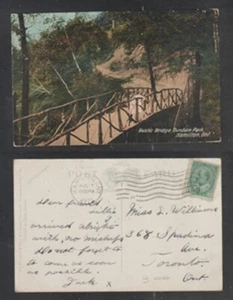 Rustic Bridge, Dundurn Park
Hamilton, Ont.
POST CARD
Dear friend
Lillie
arrived alright
with no mishaps
Do not forget to
to come as soon
as possible.
Jack x
Miss L. Williams
368 Spadina
Ave.
Toronto
Ont